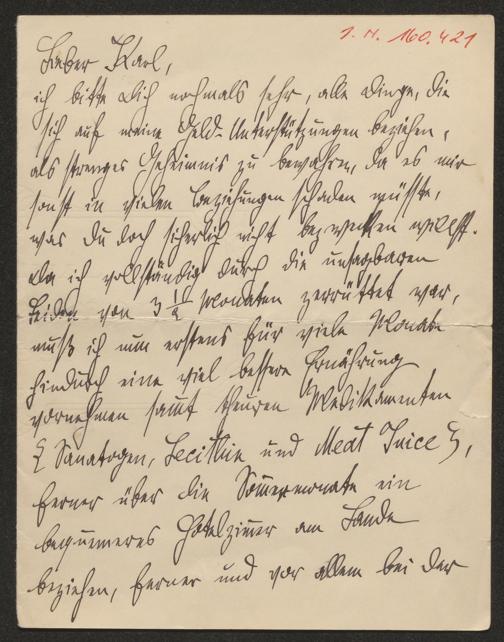 I. N. 160.421
Lieber Karl,
ich bitte Dich nochmals sehr, alle Dinge, die
sich auf meine Geld-Unterstützungen beziehen,
als strenges Geheimnis zu bewahren, da es mir
sonst in vielen Beziehungen schaden müsste,
was Du doch sicherlich nicht bezwecken willst.
Da ich vollständig durch die unsagbaren
Leiden von 3 1/2 Monaten zerrüttet war,
muß ich nun erstens für viele Monate
hindurch eine viel bessere Ernährung
vornehmen samt theuren Medikamenten
{ Sanatogen, Lecithin und Meat Juice },
ferner über die Sommermonate ein
bequemeres Hotelzimmer am Lande
beziehen, ferner und vor allem bei der